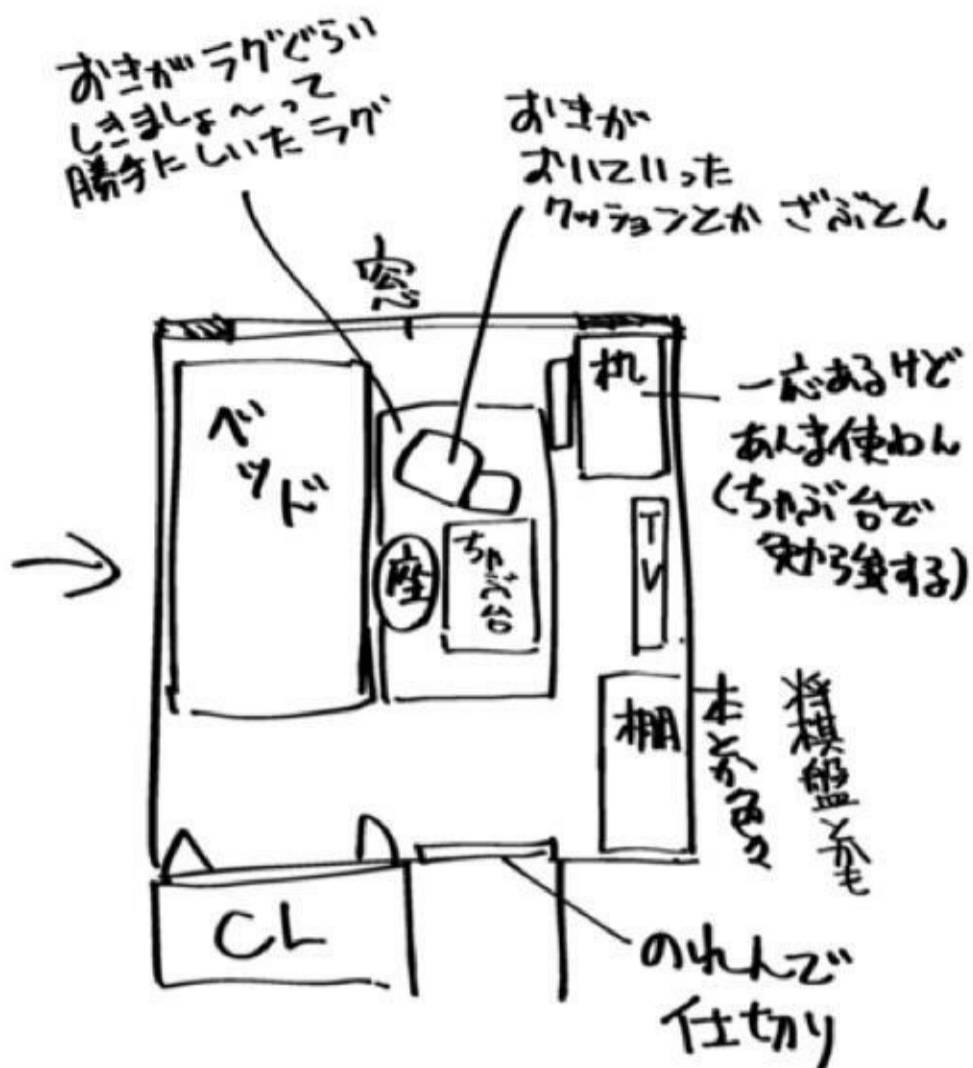 おきがラグぐらい
しきましょ〜って
勝手にしいたラグ
おきが
おいていった
クッションとか ざぶとん
窓
ベッド
机
一応あるけど
あんま使わん
(ちゃぶ台で
勉強する)
座
ちゃぶ台
TV
棚
本とか色々
将棋盤とかも
CL
のれんで
仕切り